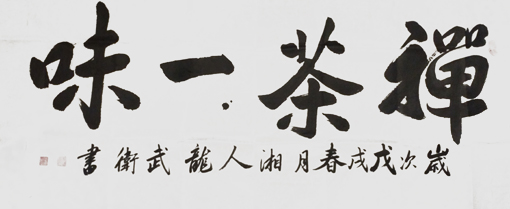 禪茶一味
歲次戊戌春月湘人龍武衛書